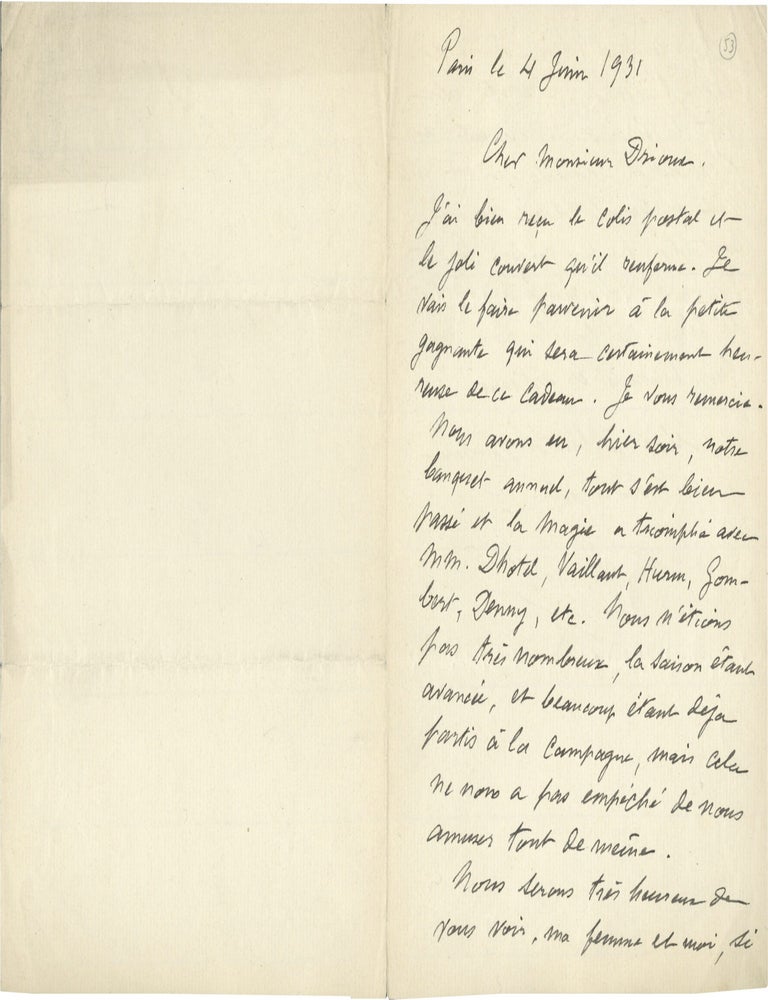 53
Paris le 4 Juin 1931
Cher Monsieur Drioux.
J'ai bien reçu le colis postal et
le joli couvert qu'il renferme. Je
vais le faire parvenir à la petite
gagnante qui sera certainement heu-
reuse de ce cadeau. Je vous remercie.
Nous avons eu, hier soir, notre
banquet annuel, tout s'est bien
passé et la magie a triomphé avec
MM. Dhotel, Vaillant, Hurm, Gom-
bert, Denny, etc. Nous n'étions
pas très nombreux, la saison étant
avancée, et beaucoup étant déjà
partis à la campagne, mais cela
ne nous a pas empêché de nous
amuser tout de même.
Nous serons très heureux de
vous voir, ma femme et moi, si